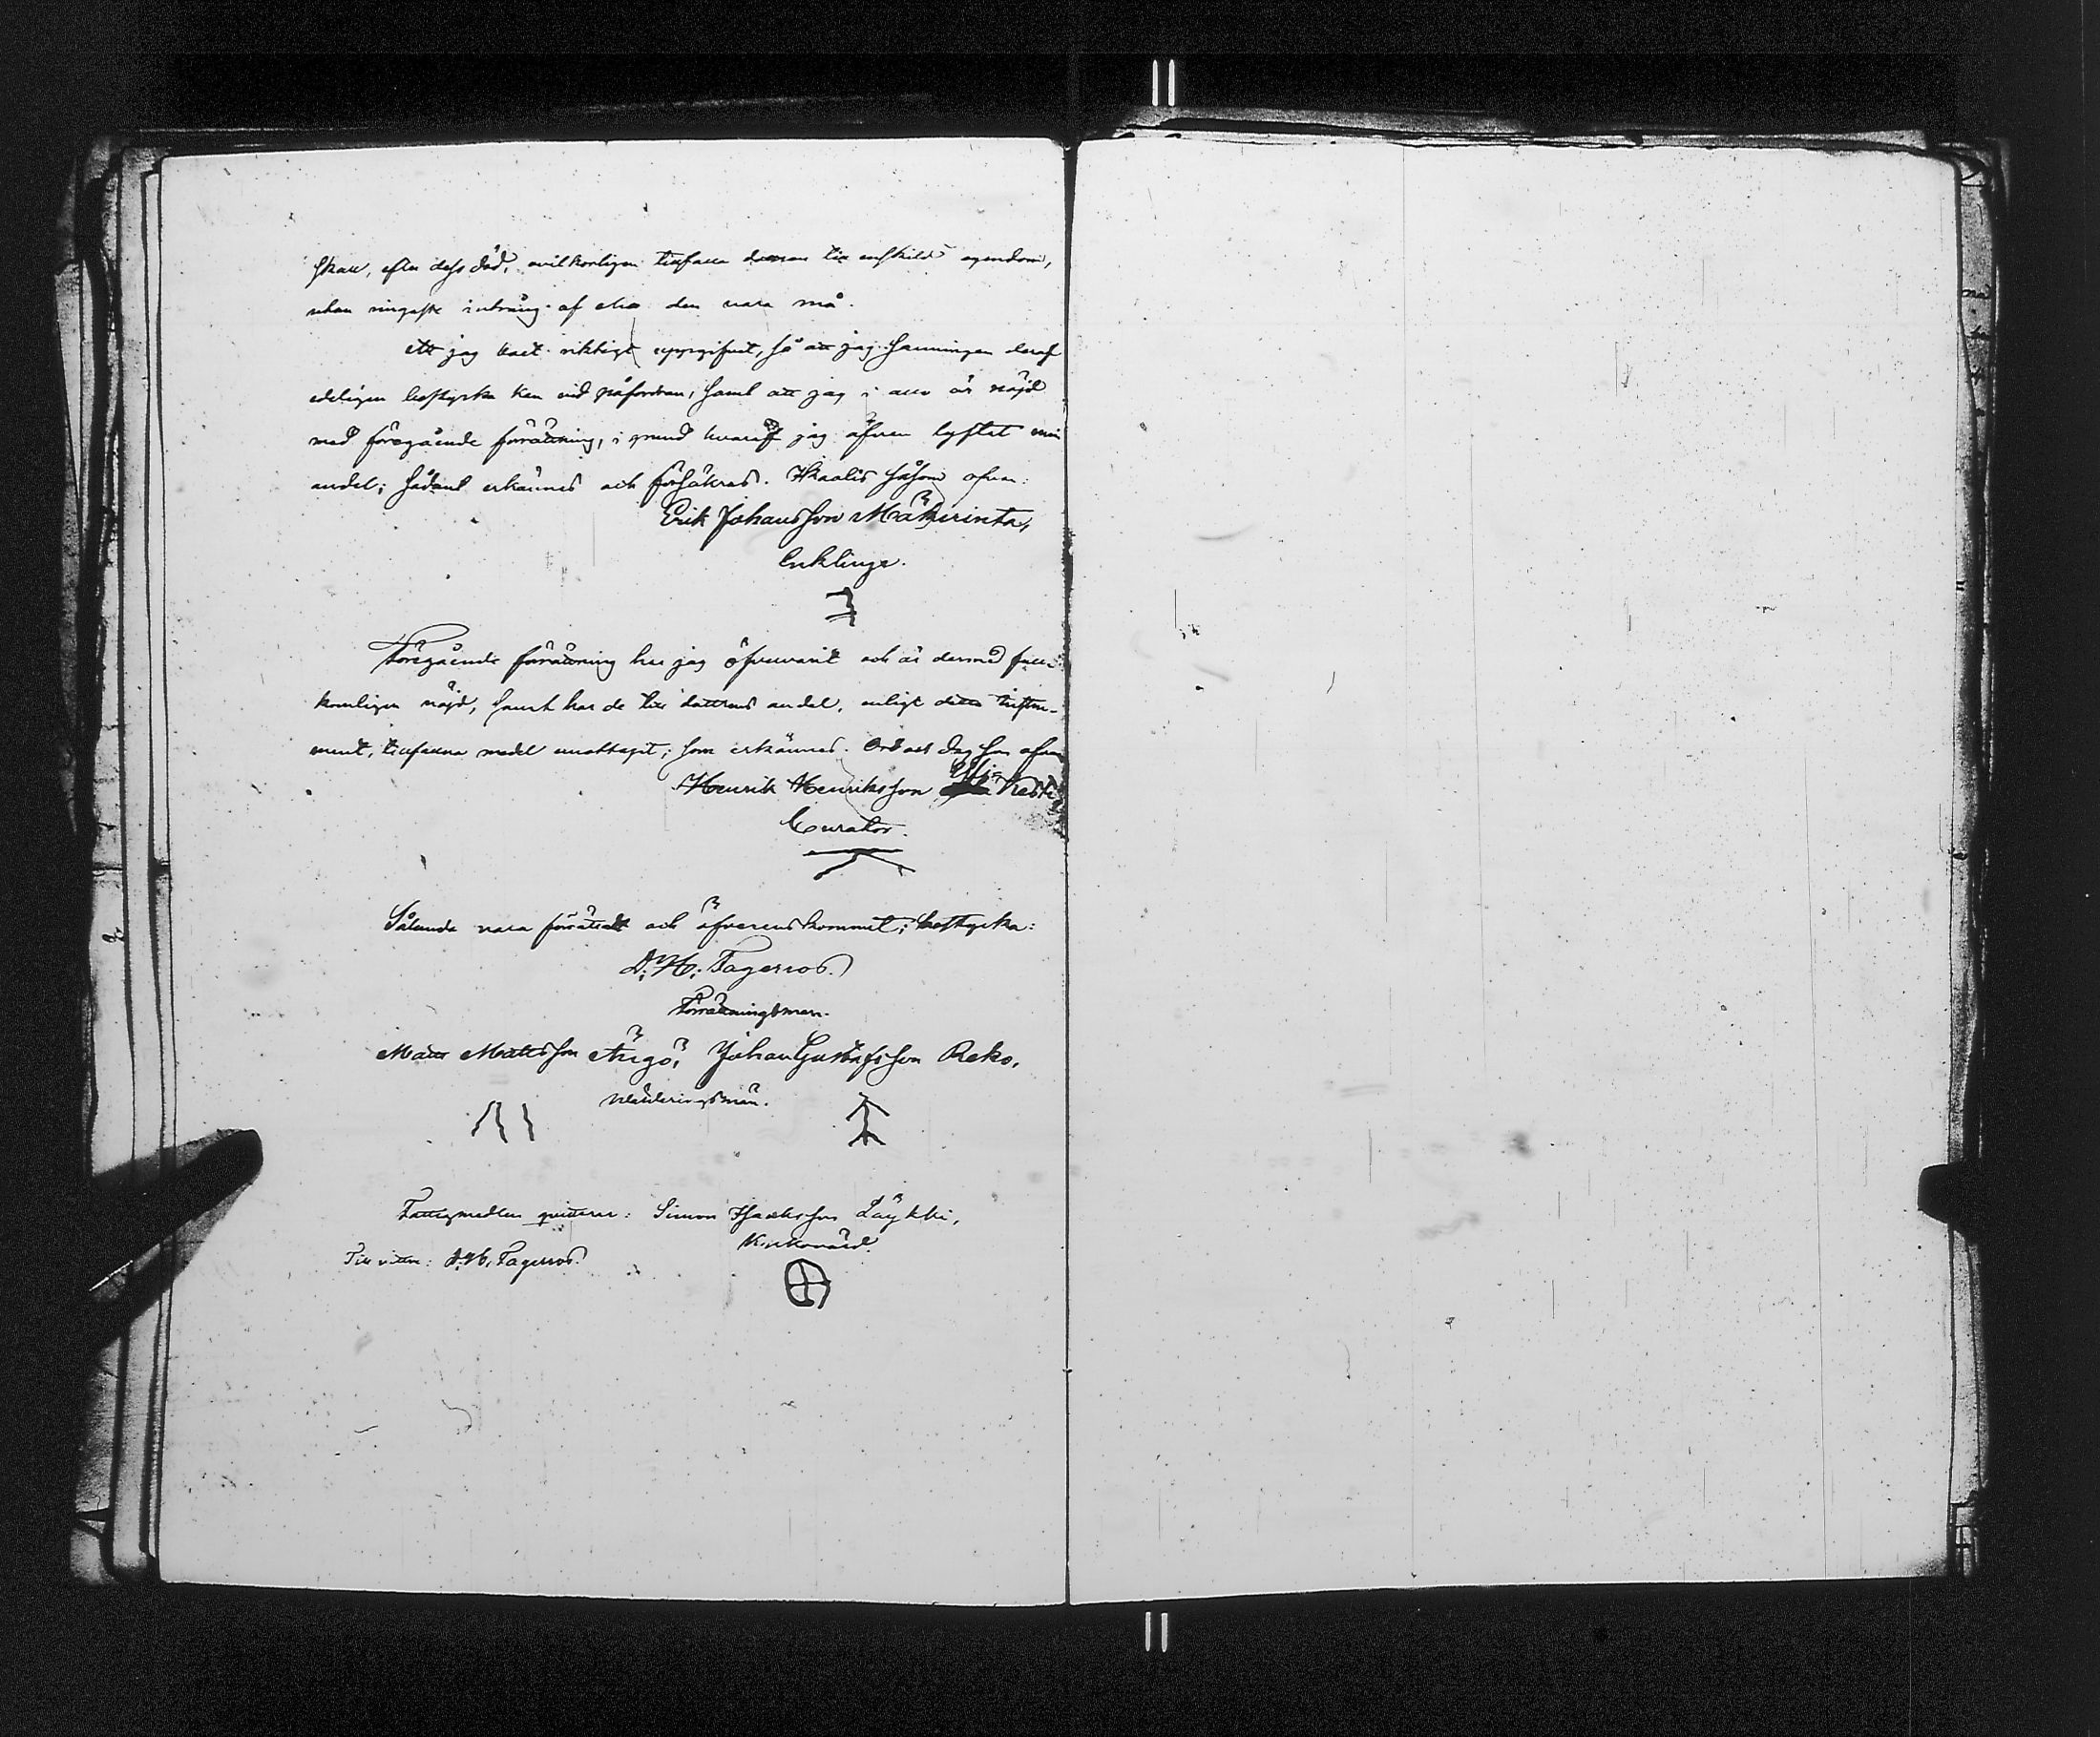 skall, efter dess död, ovilkorligen tillfalla dottren till enskild egendom,
utan ringaste intrång af eho den vara må.
Att jag allt riktigt uppgifvit, så att jag sanningen deraf
edeligen bestyrka kan vid påfordran, samt att jag i allo är nöjd
med föregående förrättning, i grund hvaraf jag äfven lyftat min
andel; sådant erkännes och försäkras. Ikaalis såsom ofvan:
Erik Johansson Mäkirinta,
Enklinge.
Föregående förrättning har jag öfvervarit och är dermed full-
komligen nöjd, samt har de till dottrens andel, enligt detta instru-
ment, tillfallna medel emottagit; som erkännes. Ort och dag som ofvan
Henrik Henriksson Yli Kesti
Curator.
Sålunda vara förrättadt och öfverenskommit; bestyrka:
D. H. Fagerroos.
Förrättningsman.
Matts Mattsson Äijö, Johan Gustafsson Reko,
Värderingsmän.
Fattigmedlen qvitteras: Simon Isacksson Läykki,
Kyrkovärd.
Till vittne: D. H. Fagerroos.